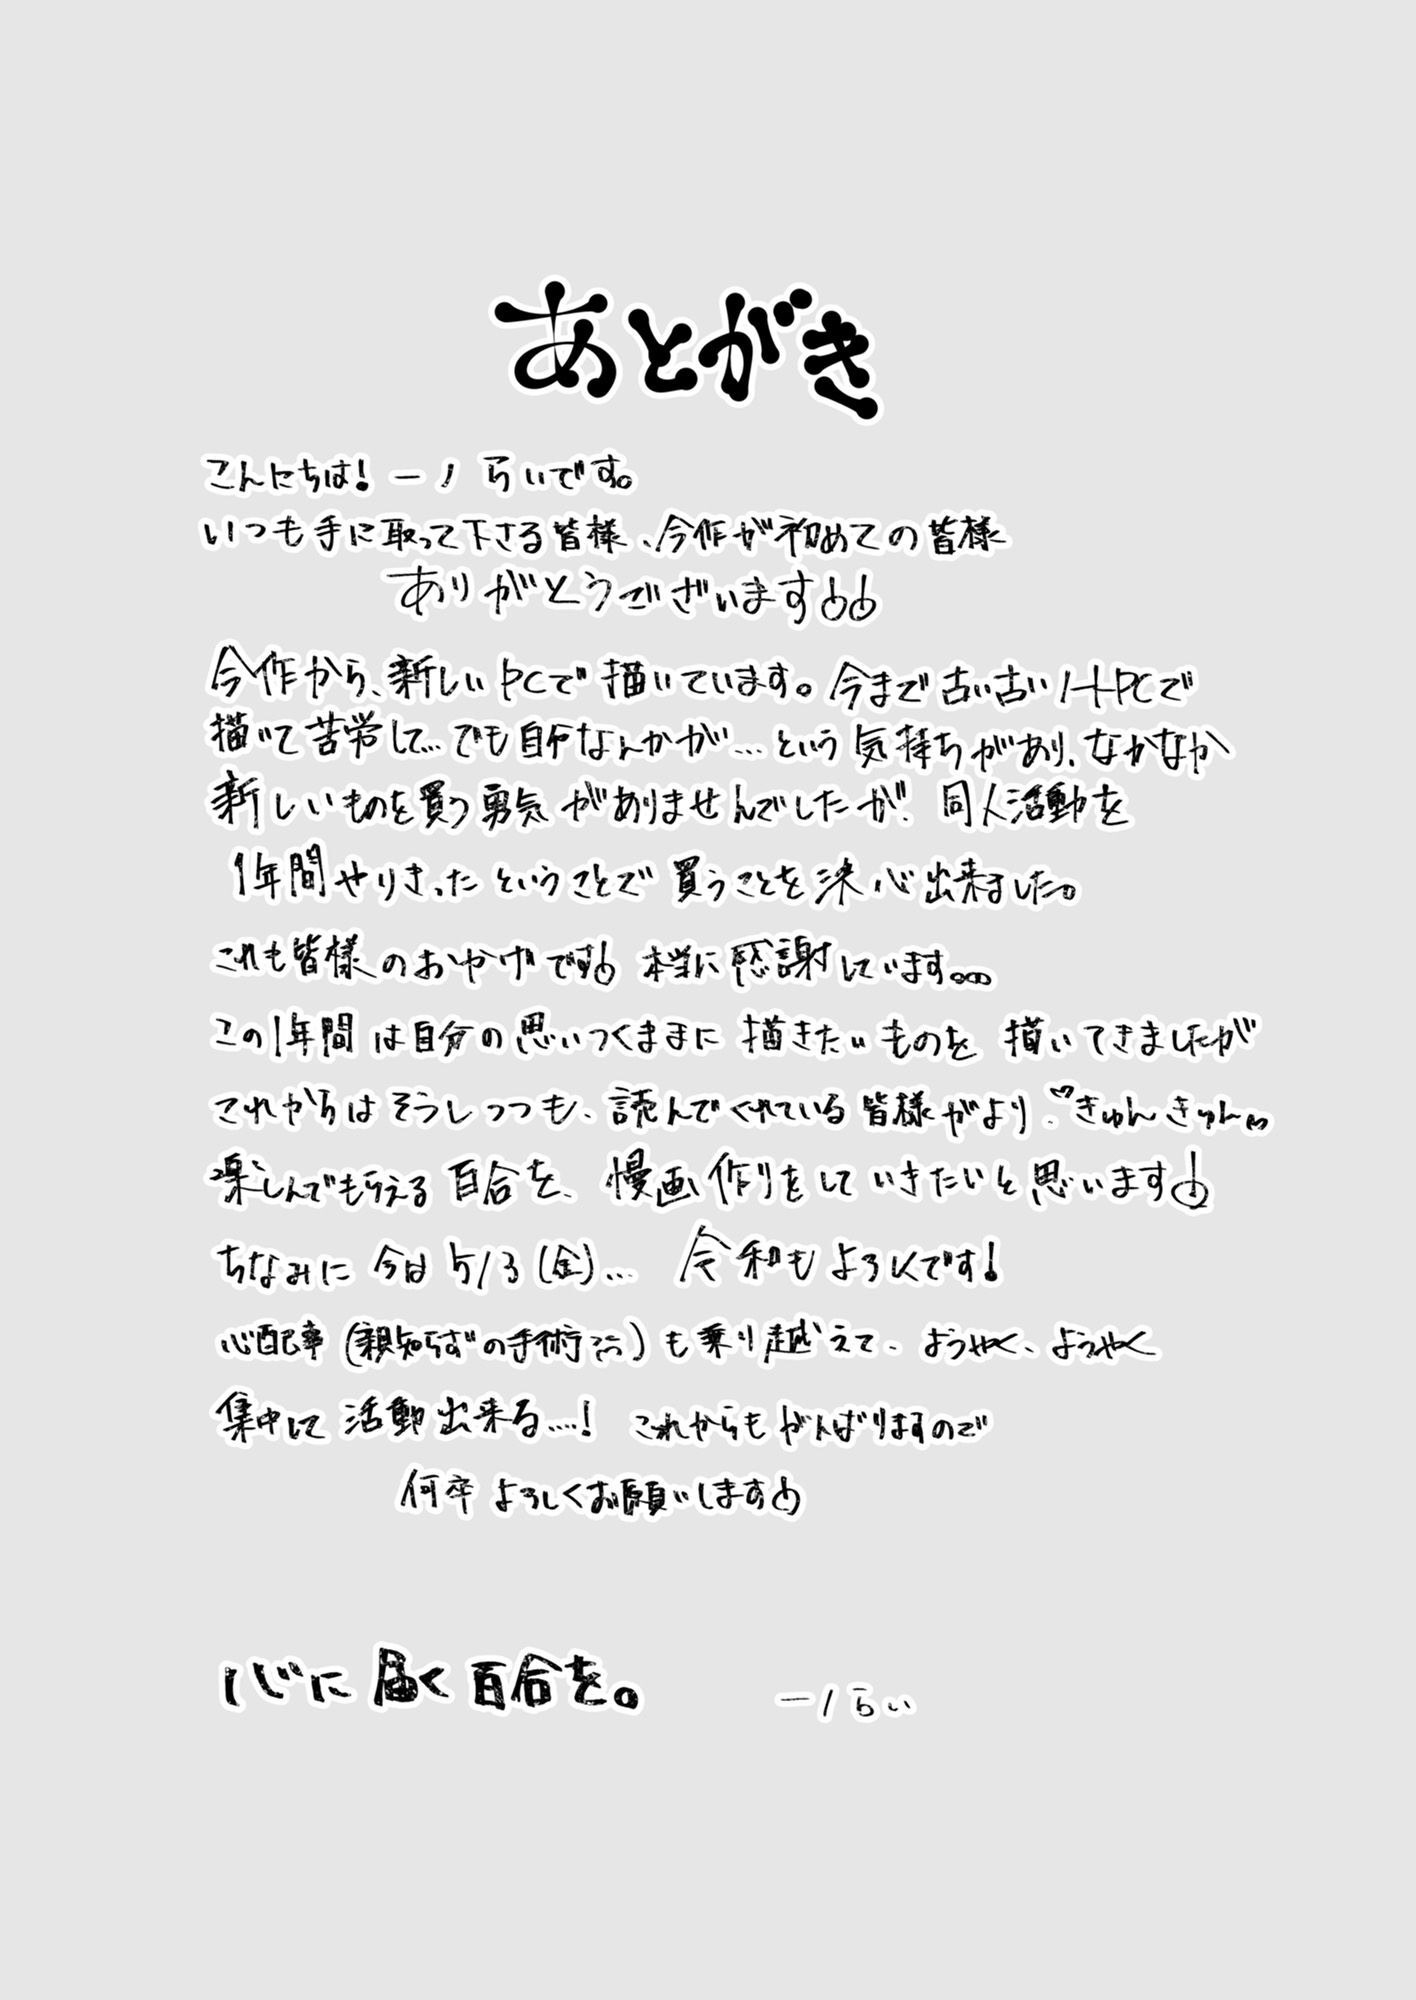 あとがき
こんにちは! 一ノらいです。
いつも手に取って下さる皆様、今作が初めての皆様
ありがとうございます!!
今作から、新しいPCで描いています。今まで古い古いノートPCで
描いて苦労して…でも自分なんかが…という気持ちがあり、なかなか
新しいものを買う勇気がありませんでしたが、同人活動を
1年間やりきったということで買うことを決心出来ました。
これも皆様のおかげです! 本当に感謝しています。。。
この1年間は自分の思いつくままに描きたいものを描いてきましたが
これからはそうしつつも、読んでくれている皆様がより、♡きゅんきゅん♡
楽しんでもらえる百合を、漫画作りをしていきたいと思います!
ちなみに今は5/3(金)… 令和もよろしくです!
心配事(親知らずの手術)も乗り越えて、ようやく、ようやく
集中して活動出来る…! これからもがんばりますので
何卒よろしくお願いします!
心に届く百合を。 一ノらい